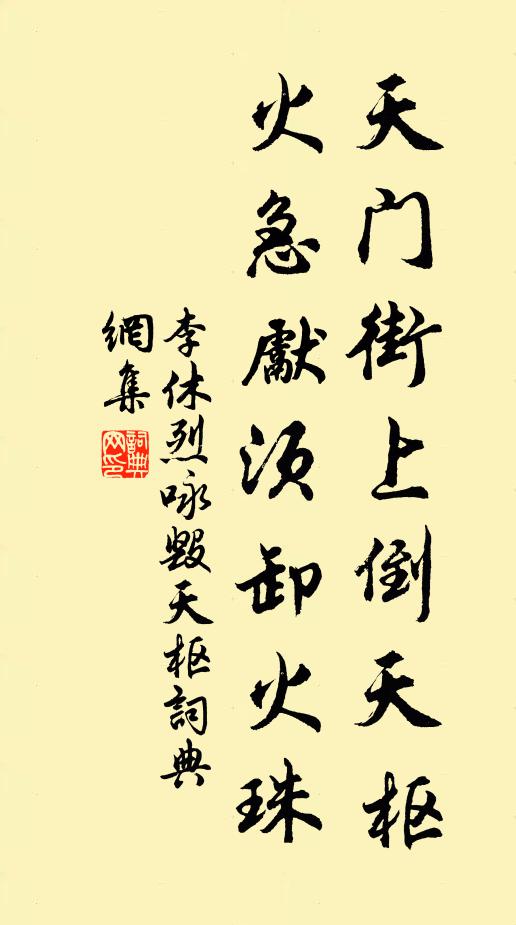 天门街上倒天枢
火急獻须卸火珠
李休烈咏毁天枢詞典
網集
詞典网印